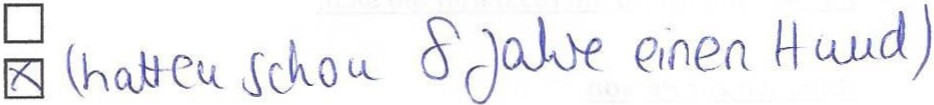 (hatten schon 8 Jahre einen Hund)